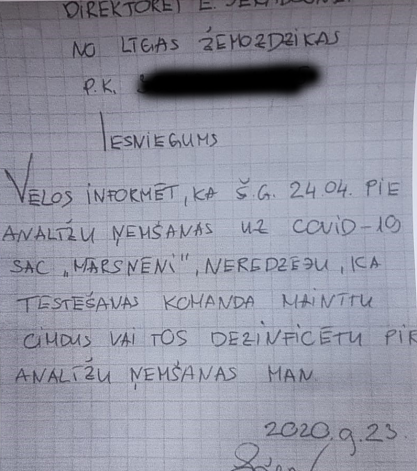 DIREKTOREI E.
NO LĪGAS ŽEMOZDZIKAS
P.K.
IESNIEGUMS
VĒLOS INFORMĒT, KA Š.G. 24.04. PIE
ANALĪŽU ŅEMŠANAS UZ COVID-19
SAC „MĀRSNĒNI", NEREDZĒJU, KA
TESTĒŠANAS KOMANDA MAINĪTU
CIMDUS VAI TOS DEZINFICĒTU PIR
ANALĪŽU ŅEMŠANAS MAN.
2020.g.23.